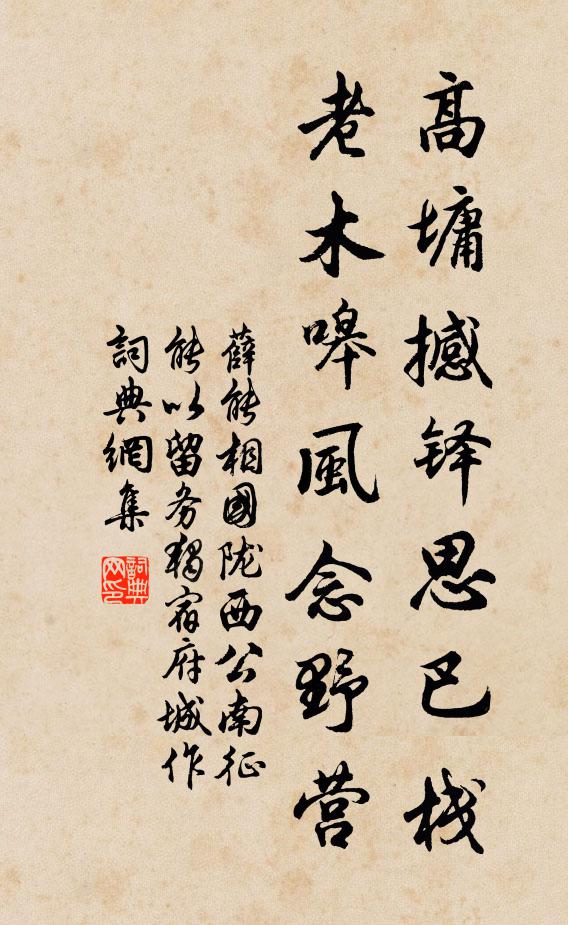 高墉撼铎思巴栈
老木嘷風念野营
薛能相國陇西公南征
能以留务独宿府城作
詞典網集
詞典網印